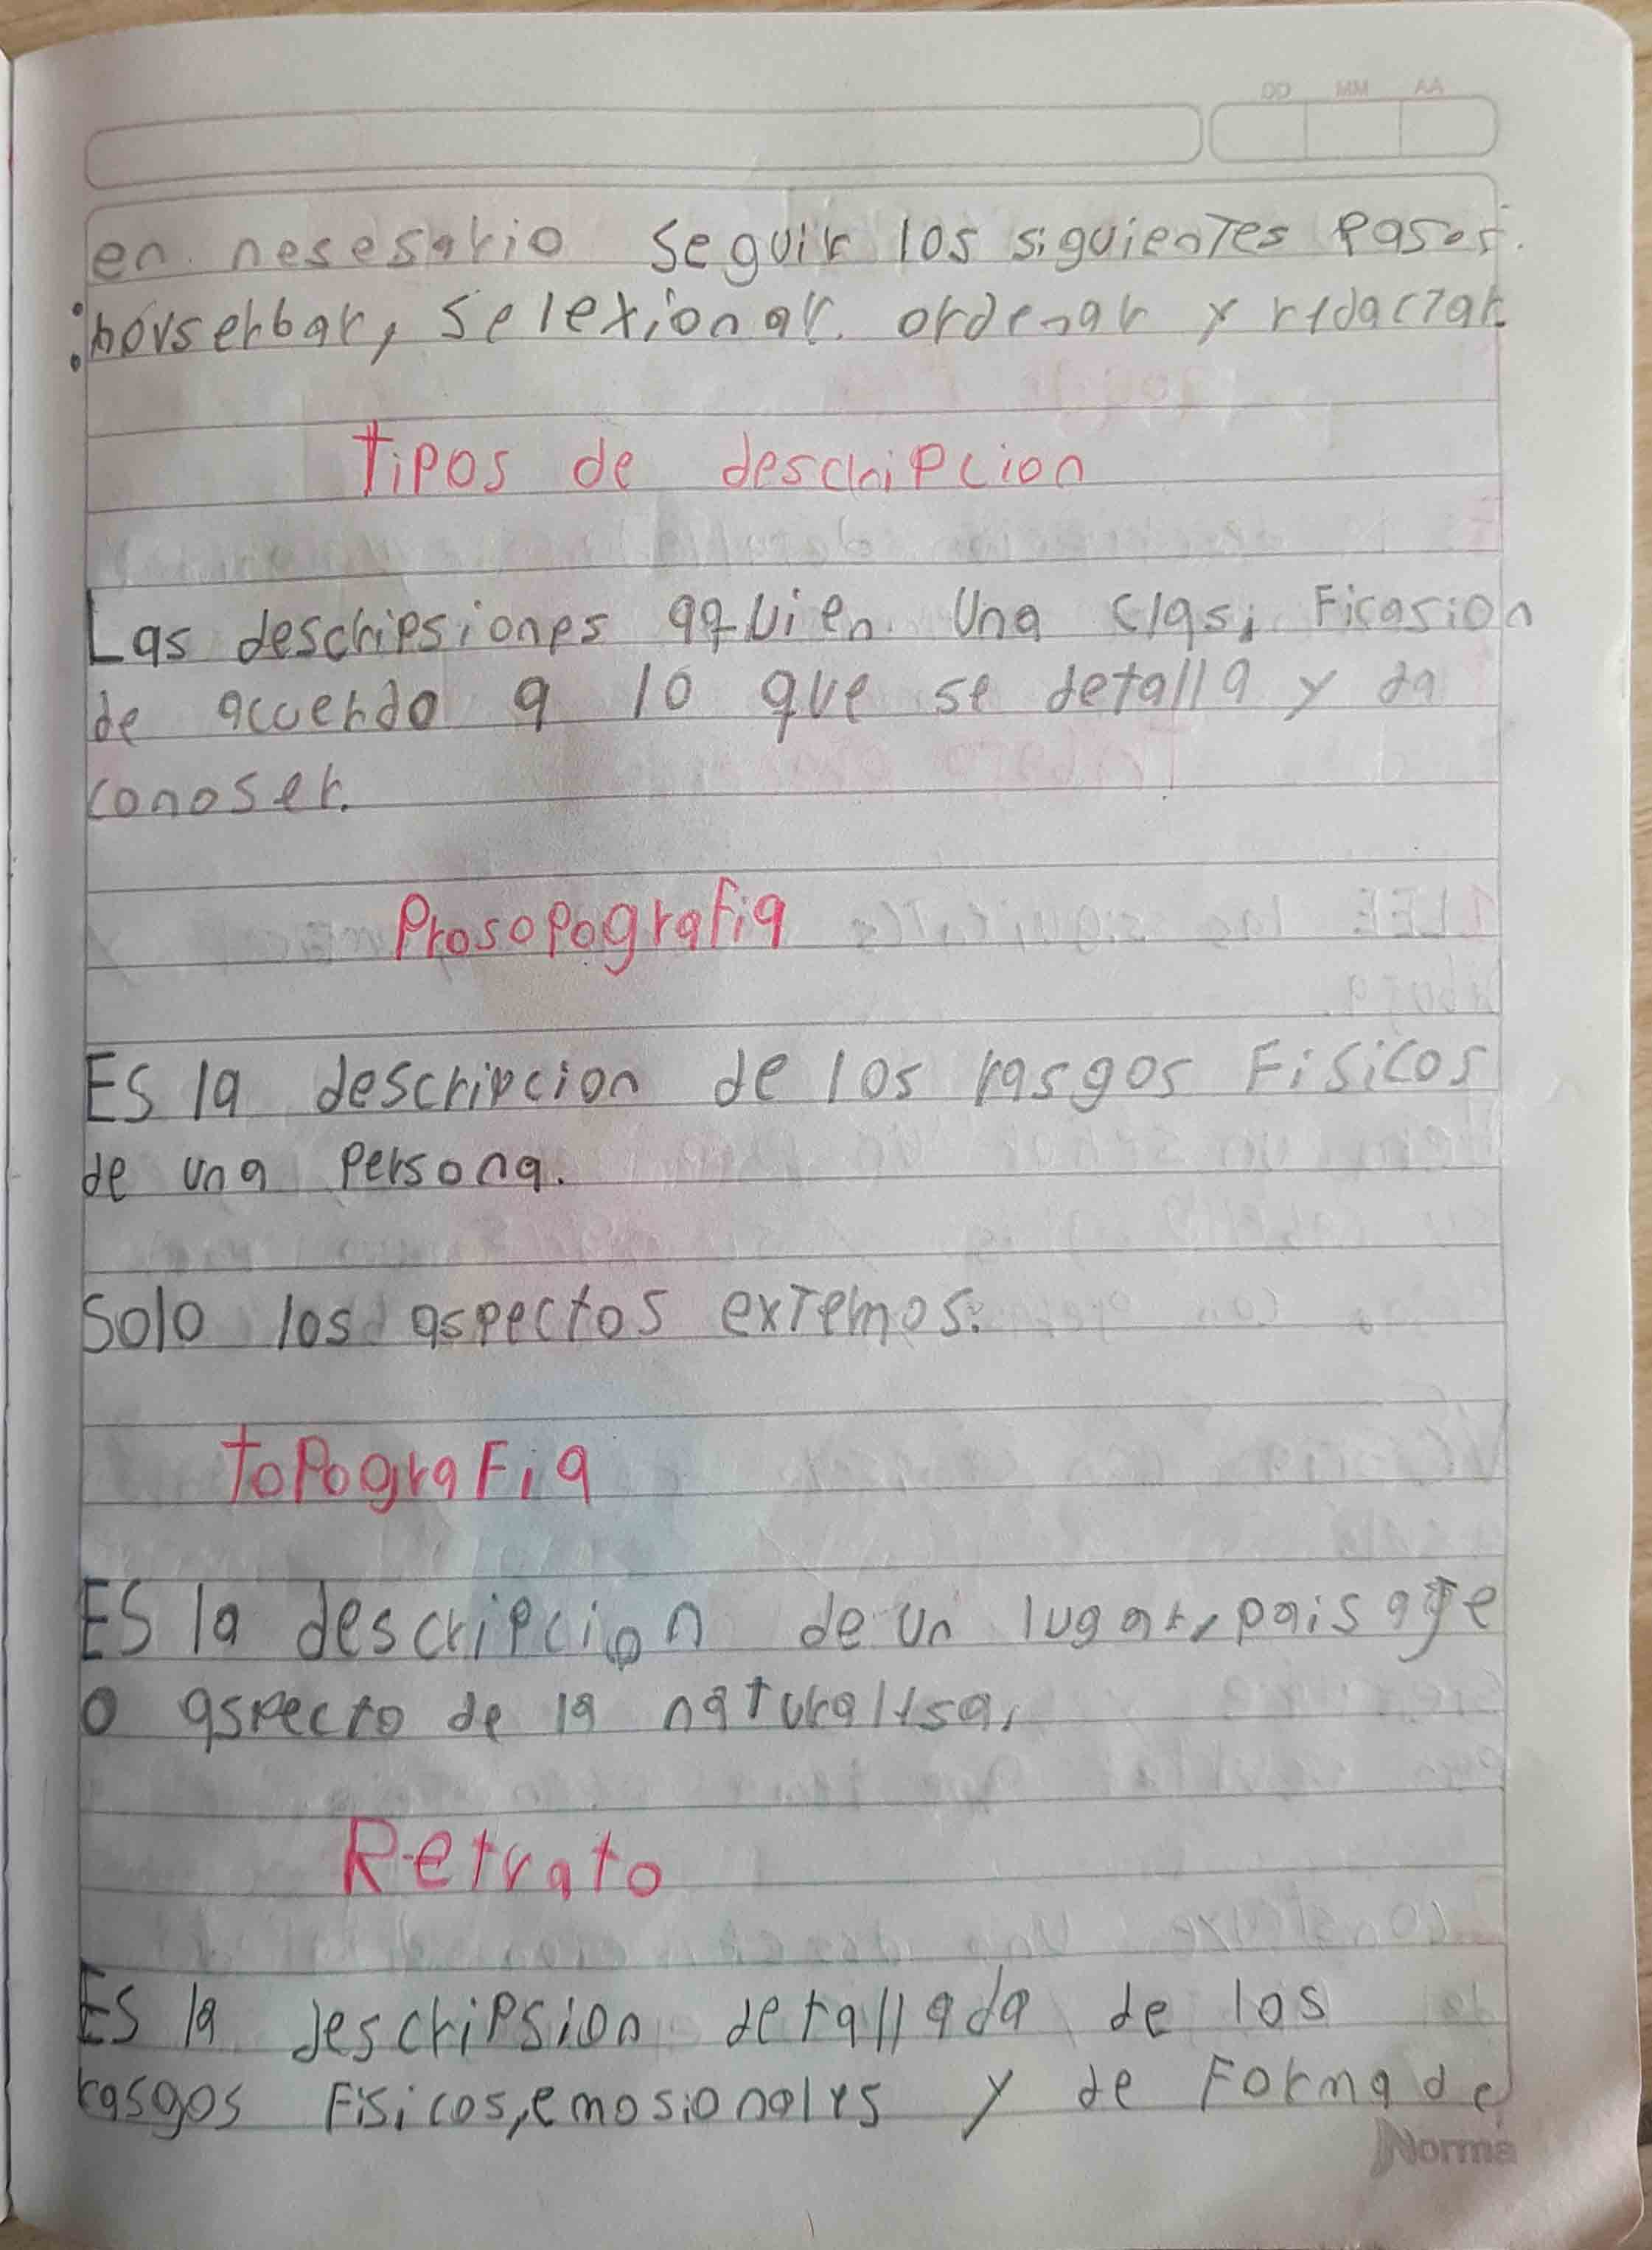 DD MM AA
en nesesario seguir los siguientes Pasos.
: hovserbar, selexionar. ordenar y redactar.
tipos de descripcion
Las descripsiones aqui en una clasi Ficasion
de acuerdo a lo que se detalla y da
conoser.
Prosopografia
Es la descripcion de los rasgos Fisicos
de una Persona.
Solo los aspectos externos.
toPograFia
ES la descripcion de un lugar, paisaje
o aspecto de la naturalesa,
Retrato
Es la descripsion detallada de los
rasgos Fisicos, emosionales y de Forma de
Norma